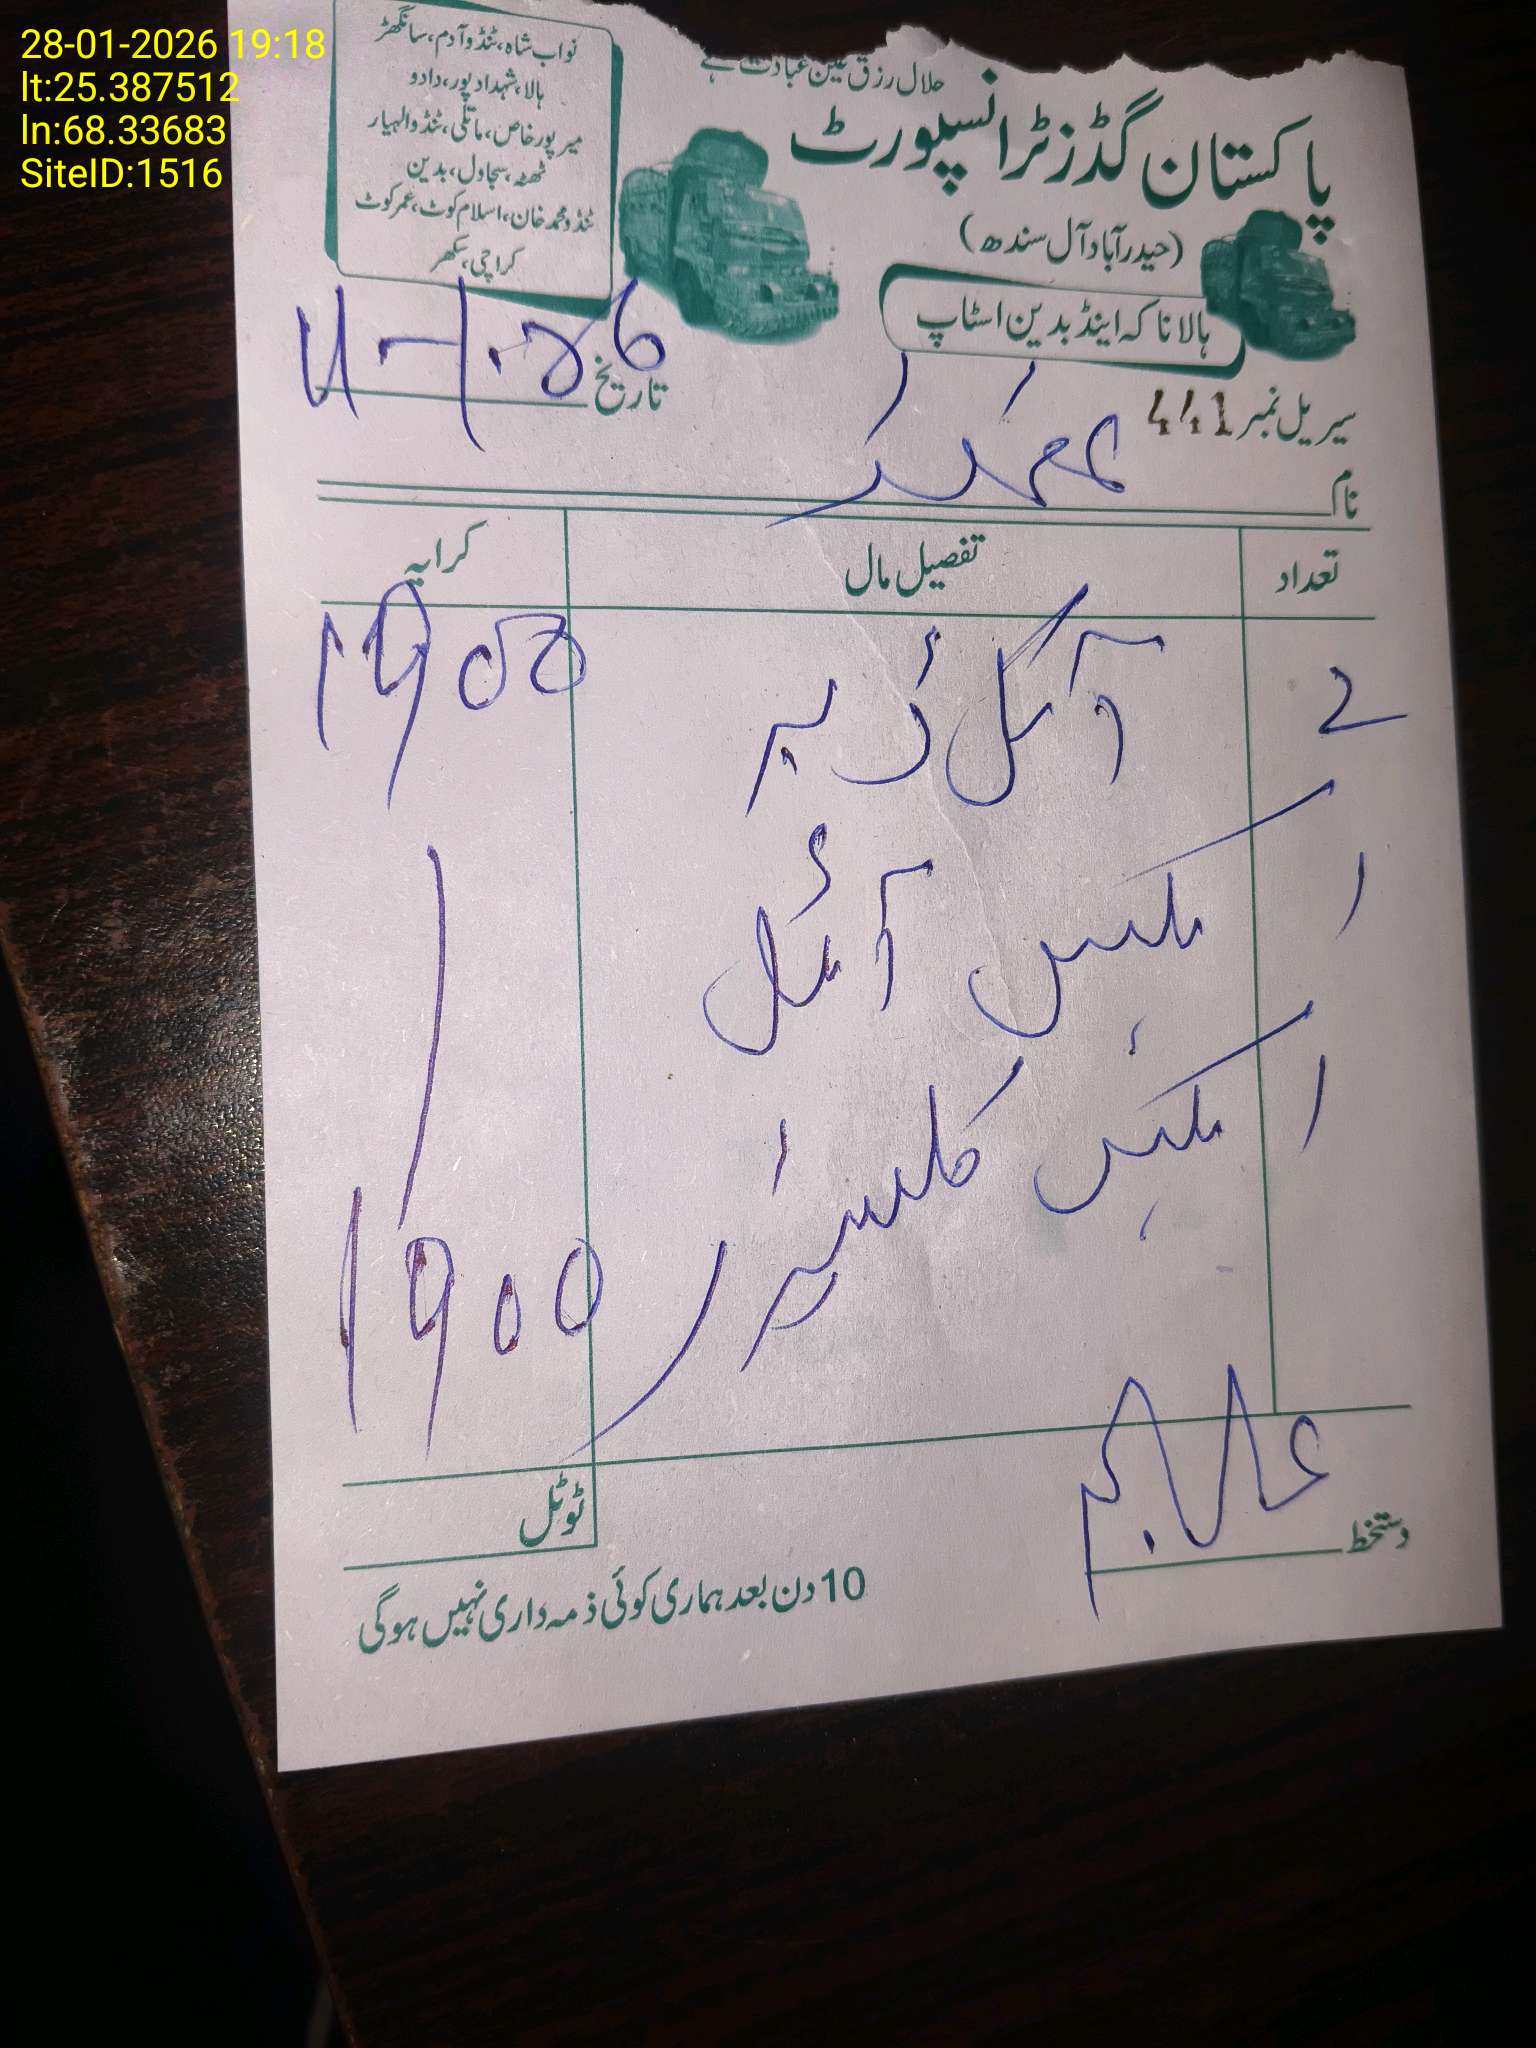 28-01-2026 19:18
lt:25.387512
ln:68.33683
SiteID:1516
حلال رزق عین عبادت ہے
پاکستان گڈز ٹرانسپورٹ
(حیدرآباد آل سندھ)
ہالا ناکہ اینڈ بدین اسٹاپ
نواب شاہ، ٹنڈو آدم، سانگھڑ
ہالا، شہداد پور، دادو
میرپور خاص، ماتلی، ٹنڈوالہیار
ٹھٹہ، سجاول، بدین
ٹنڈو محمد خان، اسلام کوٹ، عمر کوٹ
کراچی، سکھر
سیریل نمبر 441 تاریخ
نام عمر کوٹ
تعداد تفصیل مال کرایہ
2 آئل 1900
1 بکس آئل
1 بکس
1900
ٹوٹل
دستخط
10 دن بعد ہماری کوئی ذمہ داری نہیں ہوگی